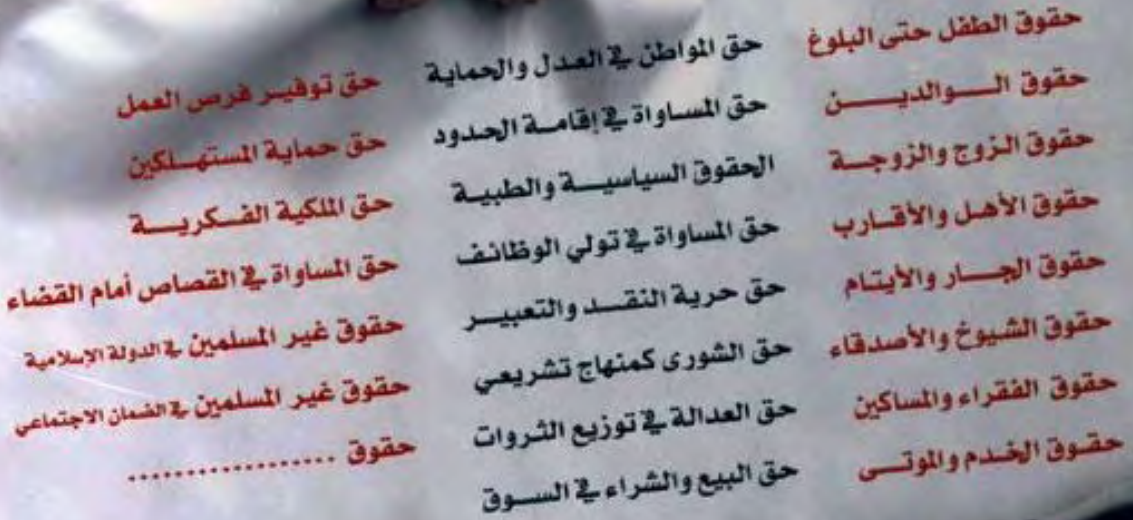 حقوق الطفل حتى البلوغ
حقوق الـوالديـــن
حقوق الزوج والزوجـة
حقوق الأهل والأقارب
حقوق الجـار والأيتام
حقوق الشيوخ والأصدقاء
حقوق الفقراء والمساكين
حقوق الخدم والموتـى
حق المواطن في العدل والحماية
حق المساواة في إقامة الحدود
الحقوق السياسية والطبية
حق المساواة في تولي الوظائف
حق حرية النقـد والتعبير
حق الشورى كمنهاج تشريعي
حق العدالة في توزيع الثروات
حق البيع والشراء في السـوق
حق توفير فرص العمل
حق حماية المستهلكين
حق الملكية الفكرية
حق المساواة في القصاص أمام القضاء
حقوق غير المسلمين في الدولة الإسلامية
حقوق غير المسلمين في الضمان الاجتماعي
حقوق .................